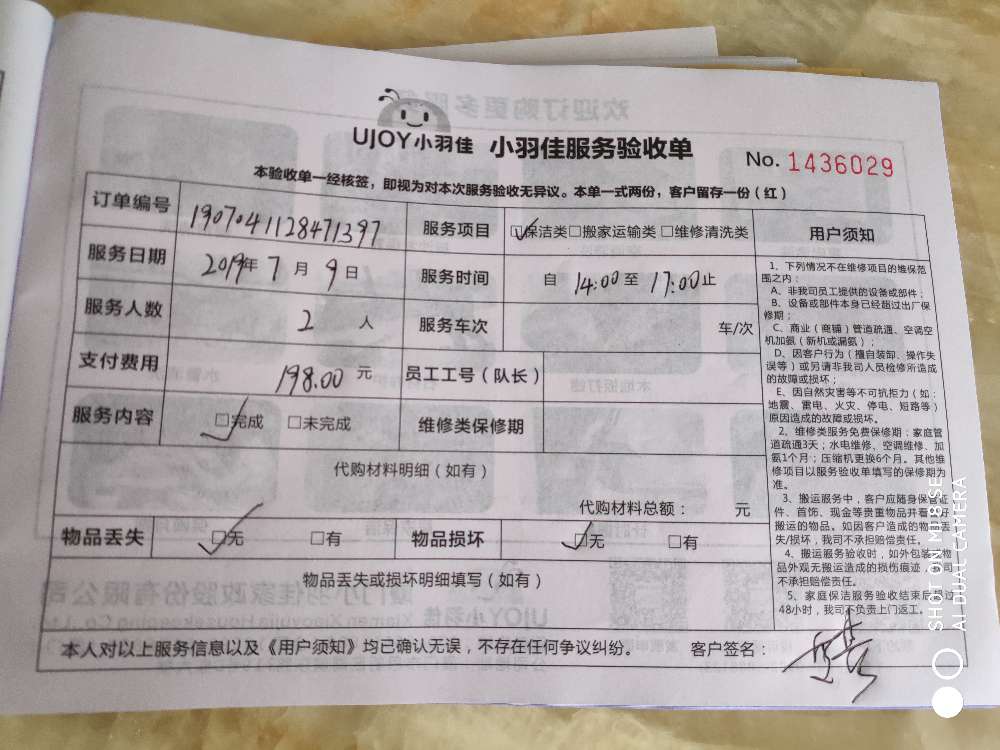 UJOY小羽佳 小羽佳服务验收单 No. 1436029
本验收单一经核签，即视为对本次服务验收无异议。本单一式两份，客户留存一份（红）
订单编号 1907041128471397 服务项目 ☑保洁类□搬家运输类□维修清洗类
服务日期 2019年7月9日 服务时间 自 14:00 至 17:00 止
服务人数 2 人 服务车次 车/次
支付费用 198.00 元 员工工号（队长）
服务内容 ☑完成 □未完成 维修类保修期
代购材料明细（如有）
代购材料总额： 元
物品丢失 ☑无 □有 物品损坏 ☑无 □有
物品丢失或损坏明细填写（如有）
本人对以上服务信息以及《用户须知》均已确认无误，不存在任何争议纠纷。 客户签名：
用户须知
1、下列情况不在维修项目的维保范
围之内：
A、非我司员工提供的设备或部件；
B、设备或部件本身已经超过出厂保
修期；
C、商业（商铺）管道疏通、空调空
机加氨（新机或漏氨）；
D、因客户行为（擅自装卸、操作失
误等）或另请非我司人员检修所造成
的故障或损坏；
E、因自然灾害等不可抗拒力（如：
地震、雷电、火灾、停电、短路等）
原因造成的故障或损坏。
2、维修类服务免费保修期：家庭管
道疏通3天；水电维修、空调维修、加
氨1个月；压缩机更换6个月。其他维
修项目以服务验收单填写的保修期为
准。
3、搬运服务中，客户应随身保管证
件、首饰、现金等贵重物品并看管好
搬运的物品。如因客户造成的物品丢
失/损坏，我司不承担赔偿责任。
4、搬运服务验收时，如外包装或物
品外观无搬运造成的损伤痕迹，公司
不承担赔偿责任。
5、家庭保洁服务验收结束后超过
48小时，我司不负责上门返工。
SHOT ON MI 8 SE
AI DUAL CAMERA